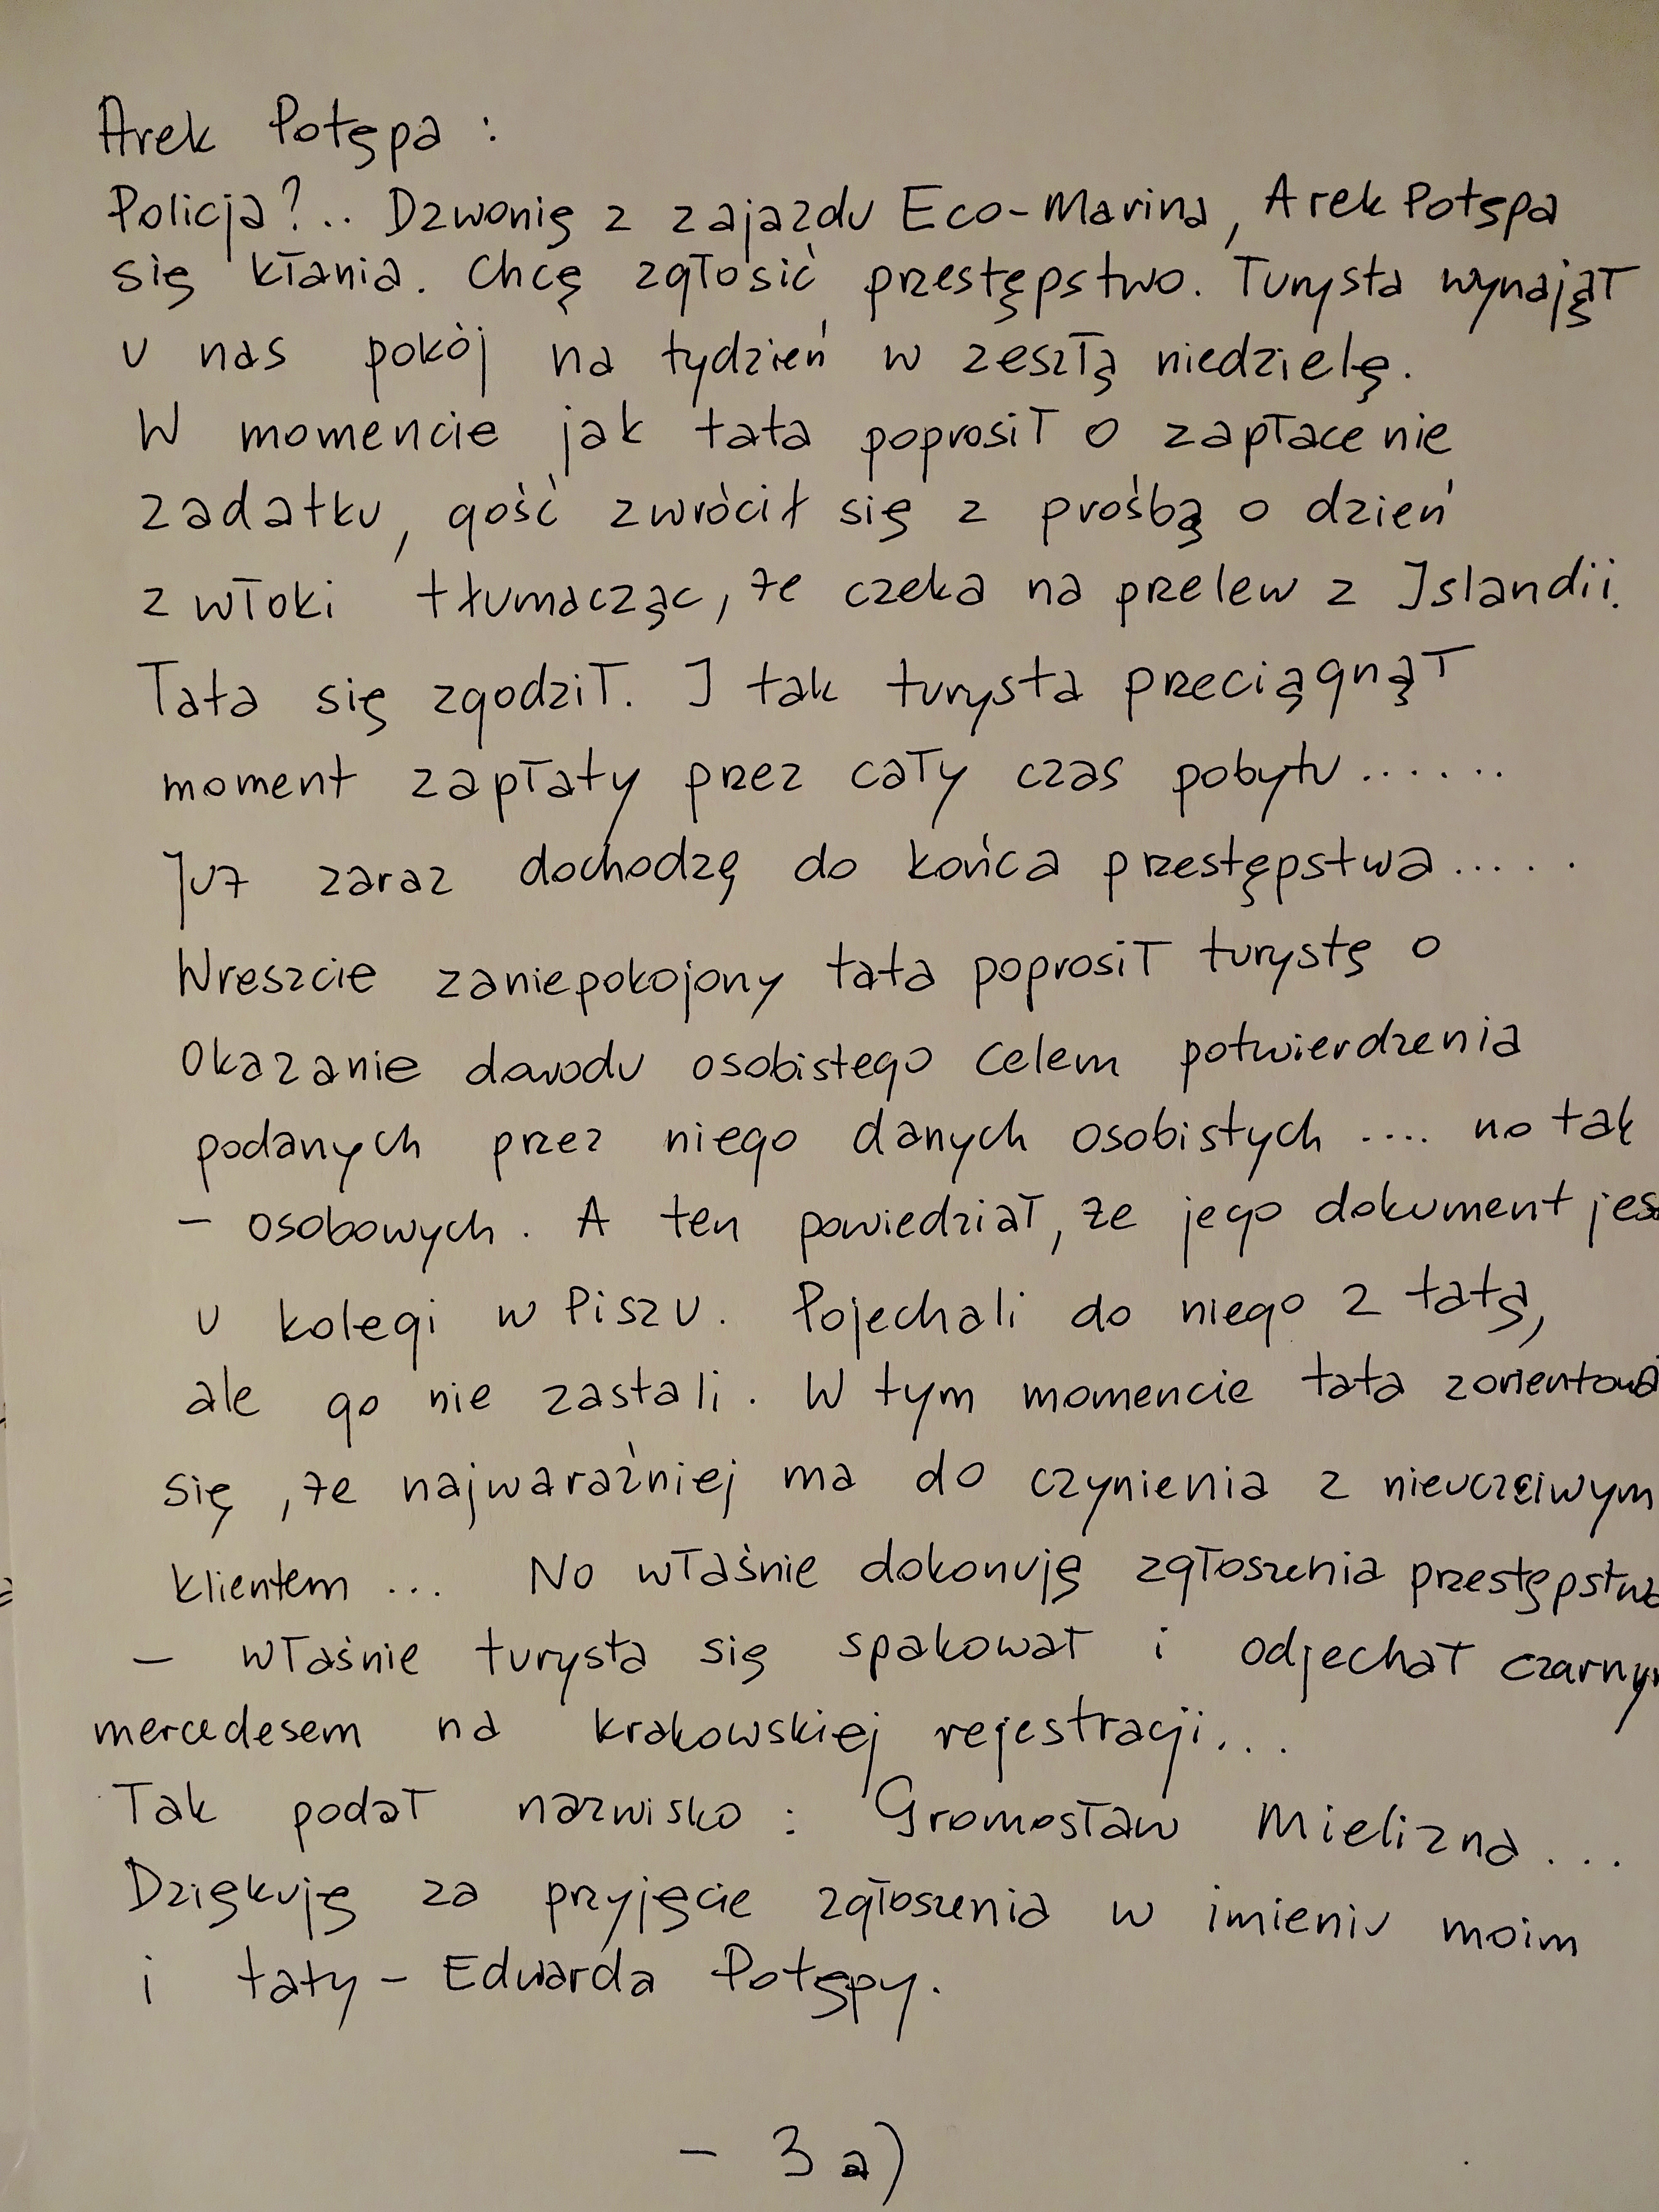 Arek Potępa :
Policja?.. Dzwonię z zajazdu Eco-Marina, Arek Potępa
się kłania. Chcę zgłosić przestępstwo. Turysta wynajął
u nas pokój na tydzień w zeszłą niedzielę.
W momencie jak tata poprosił o zapłacenie
zadatku, gość zwrócił się z prośbą o dzień
zwłoki tłumacząc, że czeka na przelew z Islandii.
Tata się zgodził. I tak turysta przeciągnął
moment zapłaty przez cały czas pobytu......
Już zaraz dochodzę do końca przestępstwa.....
Wreszcie zaniepokojony tata poprosił turystę o
okazanie dowodu osobistego celem potwierdzenia
podanych przez niego danych osobistych .... no tak
- osobowych. A ten powiedział, że jego dokument jes
u kolegi w Piszu. Pojechali do niego z tatą,
ale go nie zastali. W tym momencie tata zorientowa
się, że najwaraźniej ma do czynienia z nieuczciwym
klientem ... No właśnie dokonuję zgłoszenia przestępstwa
- właśnie turysta się spakował i odjechał czarnym
mercedesem na krakowskiej rejestracji...
Tak podał nazwisko : Gromosław Mielizna ...
Dziękuję za przyjęcie zgłoszenia w imieniu moim
i taty - Edwarda Potępy.
- 3 a)